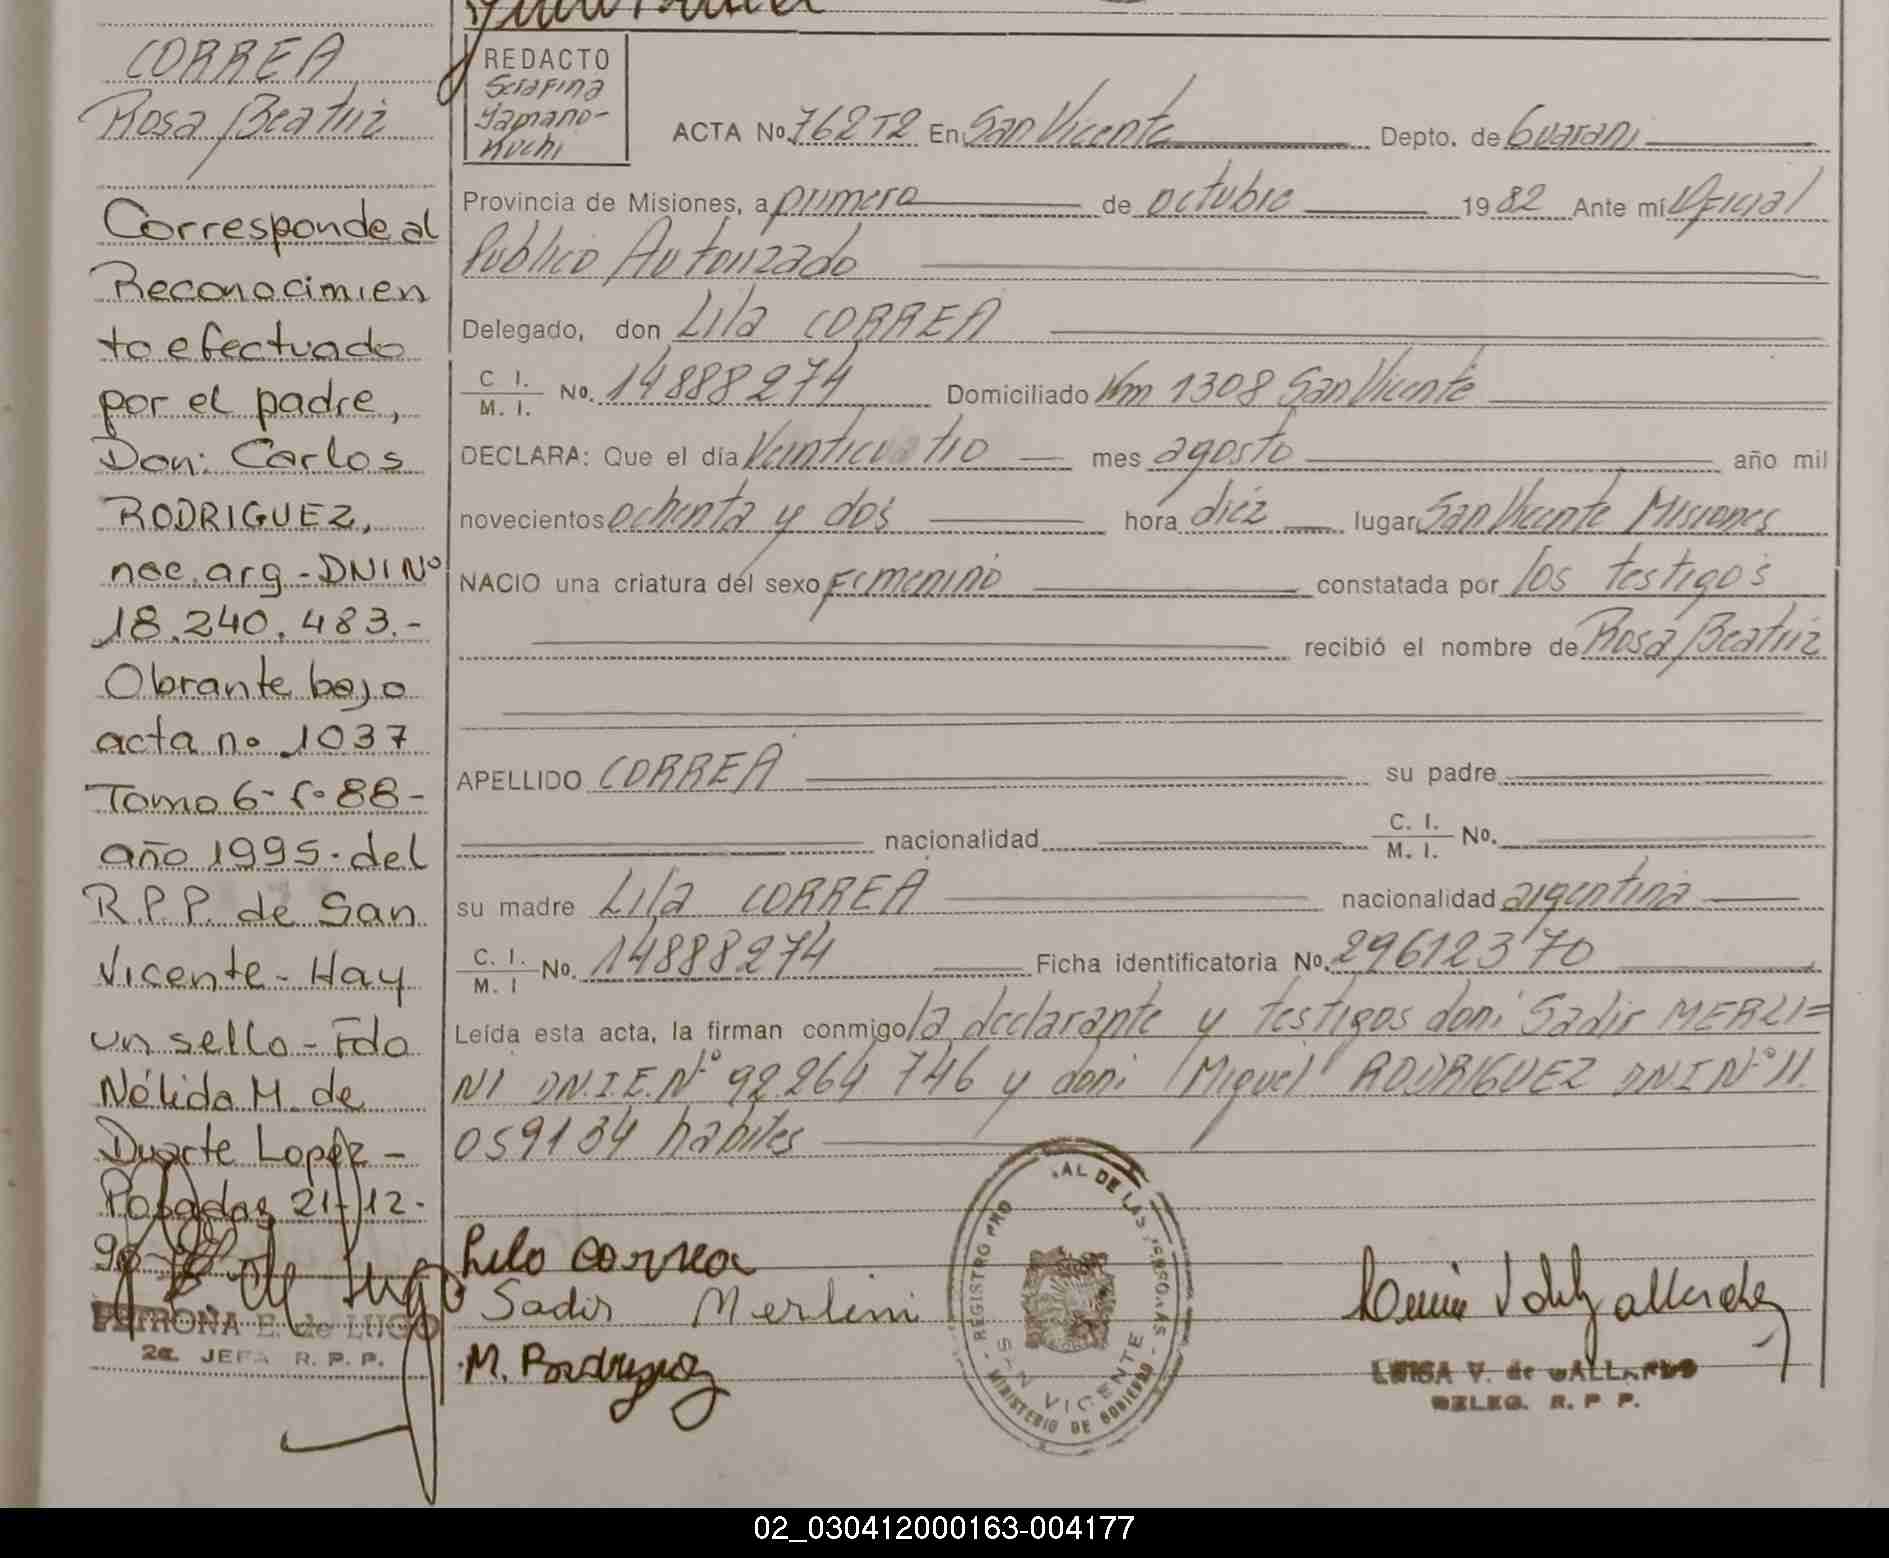 CORREA
Rosa Beatriz
Corresponde al
Reconocimien
to efectuado
por el padre,
Don: Carlos
RODRIGUEZ,
nac. arg - DNI Nº
18.240.483.-
Obrante bajo
acta nº 1037
Tomo 6- fº 88-
año 1995. del
R.P.P. de San
Vicente - Hay
un sello - Fdo
Nélida M. de
Duarte Lopez -
Posadas 21-12-
PETRONA E. de LUGO
2a. JEFA R. P. P.
REDACTO
Serafina
Kuchi
ACTA No. 762 T2 En San Vicente Depto. de Guarani
Provincia de Misiones, a primero de octubre 1982 Ante mi Oficial
Público Autorizado
Delegado, don Lila CORREA
C I. / M. I. No. 14888274 Domiciliado Km 1308 San Vicente
DECLARA: Que el día Veinticuatro mes agosto año mil
novecientos ochenta y dos hora diez lugar San Vicente Misiones
NACIO una criatura del sexo Femenino constatada por los testigos
recibió el nombre de Rosa Beatriz
APELLIDO CORREA su padre
nacionalidad C. I. / M. I. No.
su madre Lila CORREA nacionalidad argentina
C. I. / M. I No. 14888274 Ficha identificatoria No. 29612370
Leída esta acta, la firman conmigo la declarante y testigos don: Sadir MERLI=
NI DN.I.E. Nº 92.264 746 y don: Miguel RODRIGUEZ DNI Nº 11.
059134 habites
Lila correa
Sadir Merlini
M. Rodriguez
REGISTRO PRO AL DE LAS PERSONAS
SAN VICENTE
- MINISTERIO DE GOBIERNO -
LUISA V. de GALLARDO
DELEG. R. P P.
02_030412000163-004177